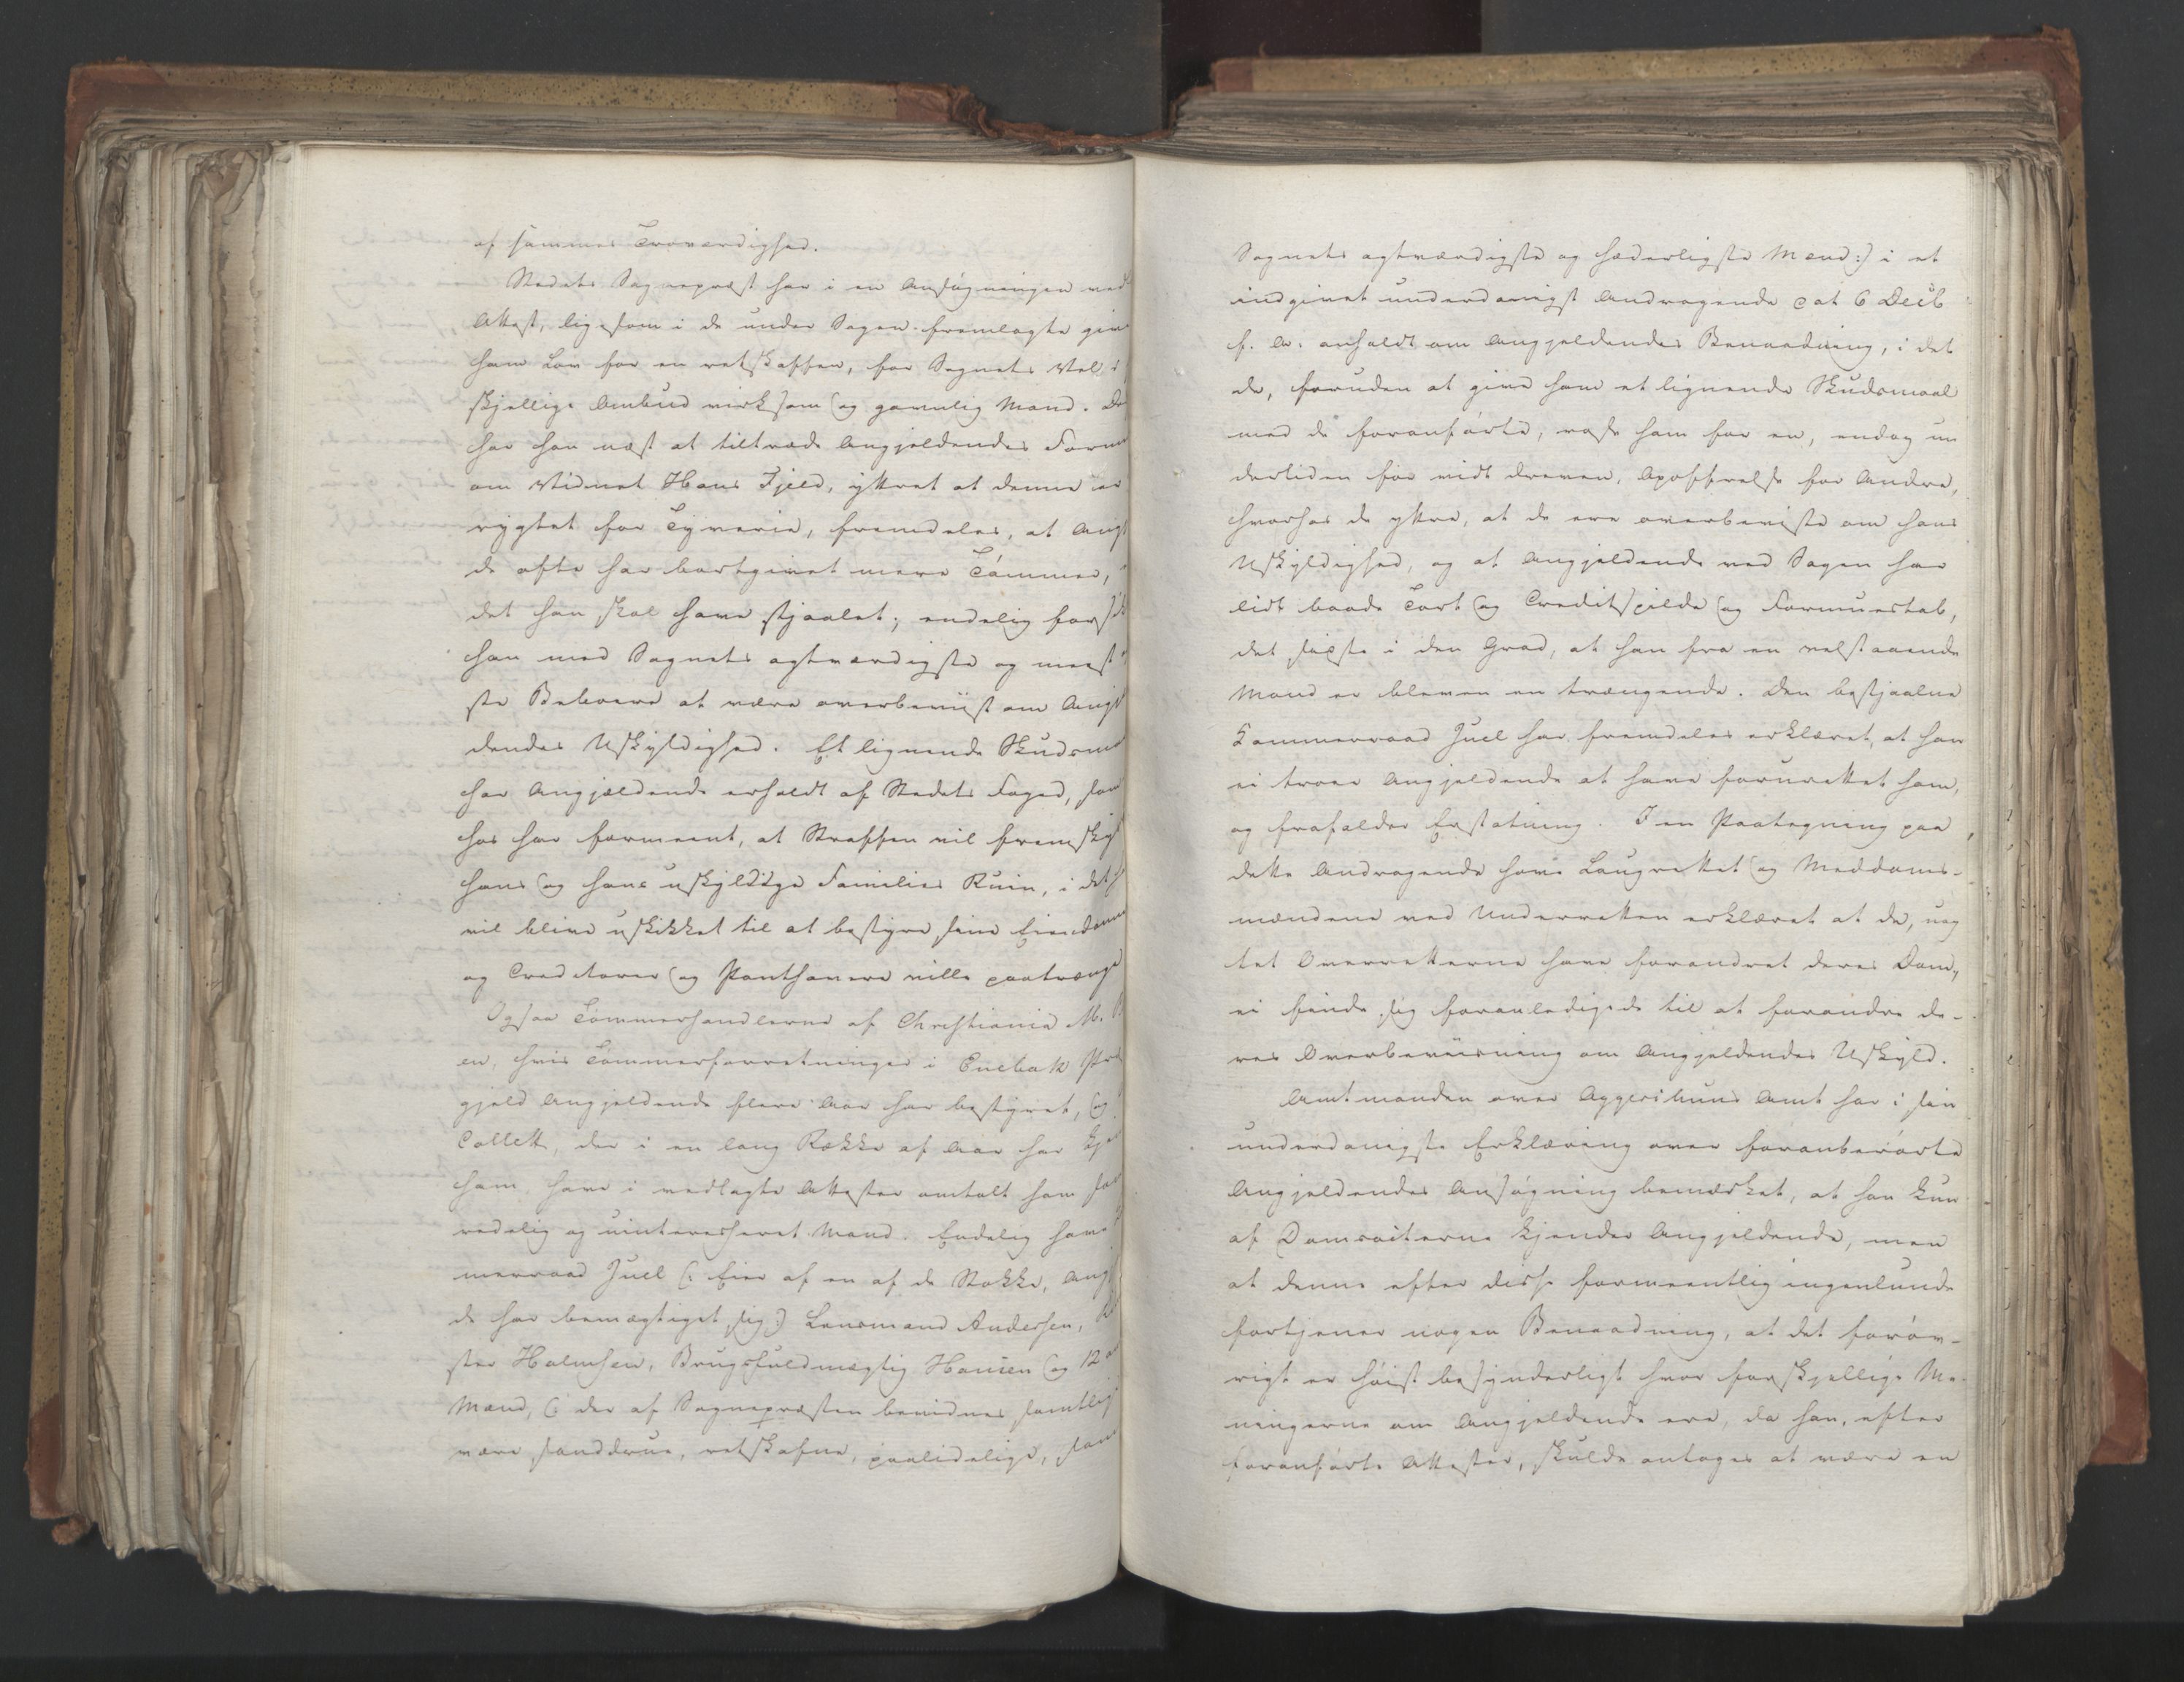 af sammes Troværdighed.
Stedets Sognepræst har i en Ansøgningen ved
Attest, ligesom i de under Sagen fremlagte give
ham Lov for en retskaffen, for Sognets Vel i
skjellige Ombud virksom og gavnlig Mand. De
har han næst at tiltræde Angjeldendes Forme
om Vidnet Hans Fjeld, yttret at denne er
rygtet for Tyverie, fremdeles, at Angj
de ofte har bortgivet mere Tømmer,
det han skal have stjaalet; endelig forsik
han med Sognets agtværdigste og meest
ste Beboere at være overbeviist om Angjel
dendes Uskyldighed. Et lignende Skudsma
har Angjældende erholdt af Stedets Foged, som
hos har formeent, at Straffen vil fremskyn
hans og hans uskyldige Families Ruin, i det
vil blive uskikket til at bestyre sine Eiendomme
og Creditorer og Panthavere ville paatrænge
Ogsaa Tømmerhandlerne af Christiania M.
en, hvis Tømmerforretninger i Enebak Præ
gjeld Angjeldende flere Aar har bestyret, og
Collett, der i en lang Række af Aar har kjen
ham, have i vedlagte Attester omtalt ham som
redelig og uinteresseret Mand. Endelig have
merraad Juel (: Eier af en af de Stokke, Angj
de har bemægtiget sig:) Lensmand Andersen,
ster Halmsen, Brugsfuldmægtig Hansen og 12
Mænd, (: der af Sognepræsten bevidnes samtlig
være sanddrue, retskafne, paalidelige, som
Sognets agtværdigste og hæderligste Mænd:) i et
indgivet underdanigst Andragende dat 6 Decb
f. A. anholdt om Angjeldendes Benaadning, i det
de, foruden at give ham et lignende Skudsmaal
med de foranførte, rose ham for en, endog un
dertiden for vidt dreven, Opoffrelse for Andre,
hvorhos de yttre, at de ere overbeviste om hans
Uskyldighed, og at Angjeldende ved Sagen har
lidt baade Tort og Creditspilde og Formuestab,
det sidste i den Grad, at han fra en velstaaende
Mand er bleven en trængende. Den bestjaalne
Kammerraad Juel har fremdeles erklæret, at han
ei troer Angjeldende at have forurettet ham,
og frafalder Erstatning. I en Paategning paa
dette Andragende have Laugrettet og Meddoms-
mændene ved Underretten erklæret at de, uag
tet Overretterne have forandret deres Dom,
ei finde sig foranledigede til at forandre de-
res Overbeviisning om Angjeldendes Uskyld.
Amtmanden over Aggershuus Amt har i sin
underdanigste Erklæring over foranberørte
Angjeldendes Ansøgning bemærket, at han kun
af Domsacterne kjender Angjeldende, men
at denne efter disse formeentlig ingenlunde
fortjener nogen Benaadning, at det forøv-
rigt er høist besynderligt hvor forskjellige Me-
ningerne om Angjeldende ere, da han, efter
foranførte Attester, skulde antages at være en